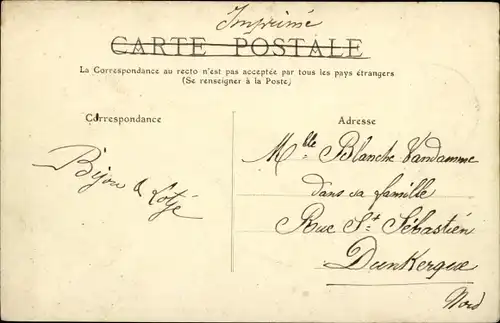 Imprimé
CARTE POSTALE
La Correspondance au recto n'est pas acceptée par tous les pays étrangers
(Se renseigner à la Poste)
Correspondance
Bijou & Lotje
Adresse
Mlle Blanche Vandamme
dans sa famille
Rue St Sébastien
Dunkerque
Nord